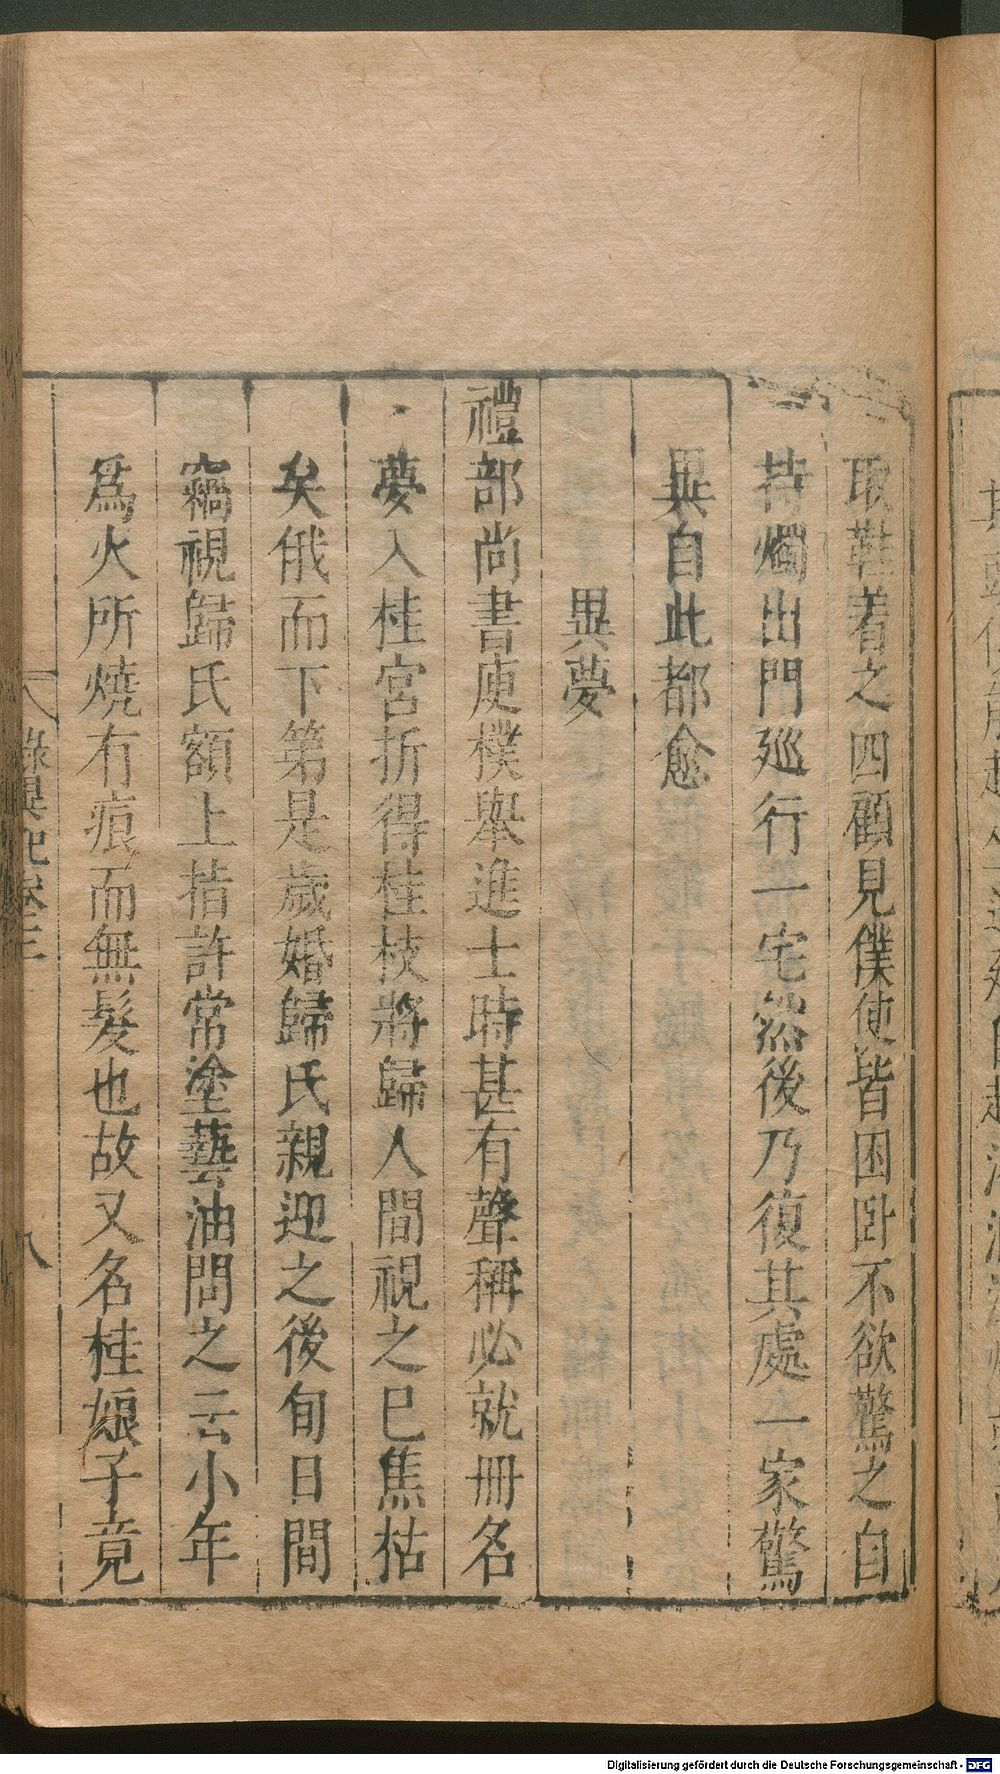 取鞋着之四顧見僕使皆困卧不欲驚之自
持燭出門廵行一宅然後乃復其處一家驚
異自此都愈
異夢
禮部尚書庾樸舉進士時甚有聲稱必就冊名
夢入桂宮折得桂枝將歸人間視之巳焦枯
矣俄而下第是歲婚歸氏親迎之後旬日間
竊視歸氏額上㨗許常塗藝油問之云小年
爲火所燒冇痕而無髮也故又名桂娘子竟
錄異記卷三
八
Digitalisierung gefördert durch die Deutsche Forschungsgemeinschaft - DFG